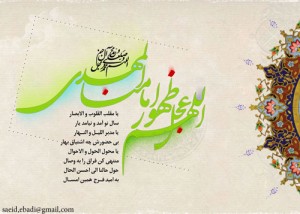 اللهم عجل ظهور امامنا المهدی
یا مقلب القلوب و الابصار
سال نو آمد و نیامد یار
یا مدبر اللیل و النهار
بی حضورش چه اشتیاق بهار
یا محول الحول و الاحوال
منتهی کن فراق را به وصال
حول حالنا الی احسن الحال
به امید فرج همین امسال
saeid.ebadi@gmail.com